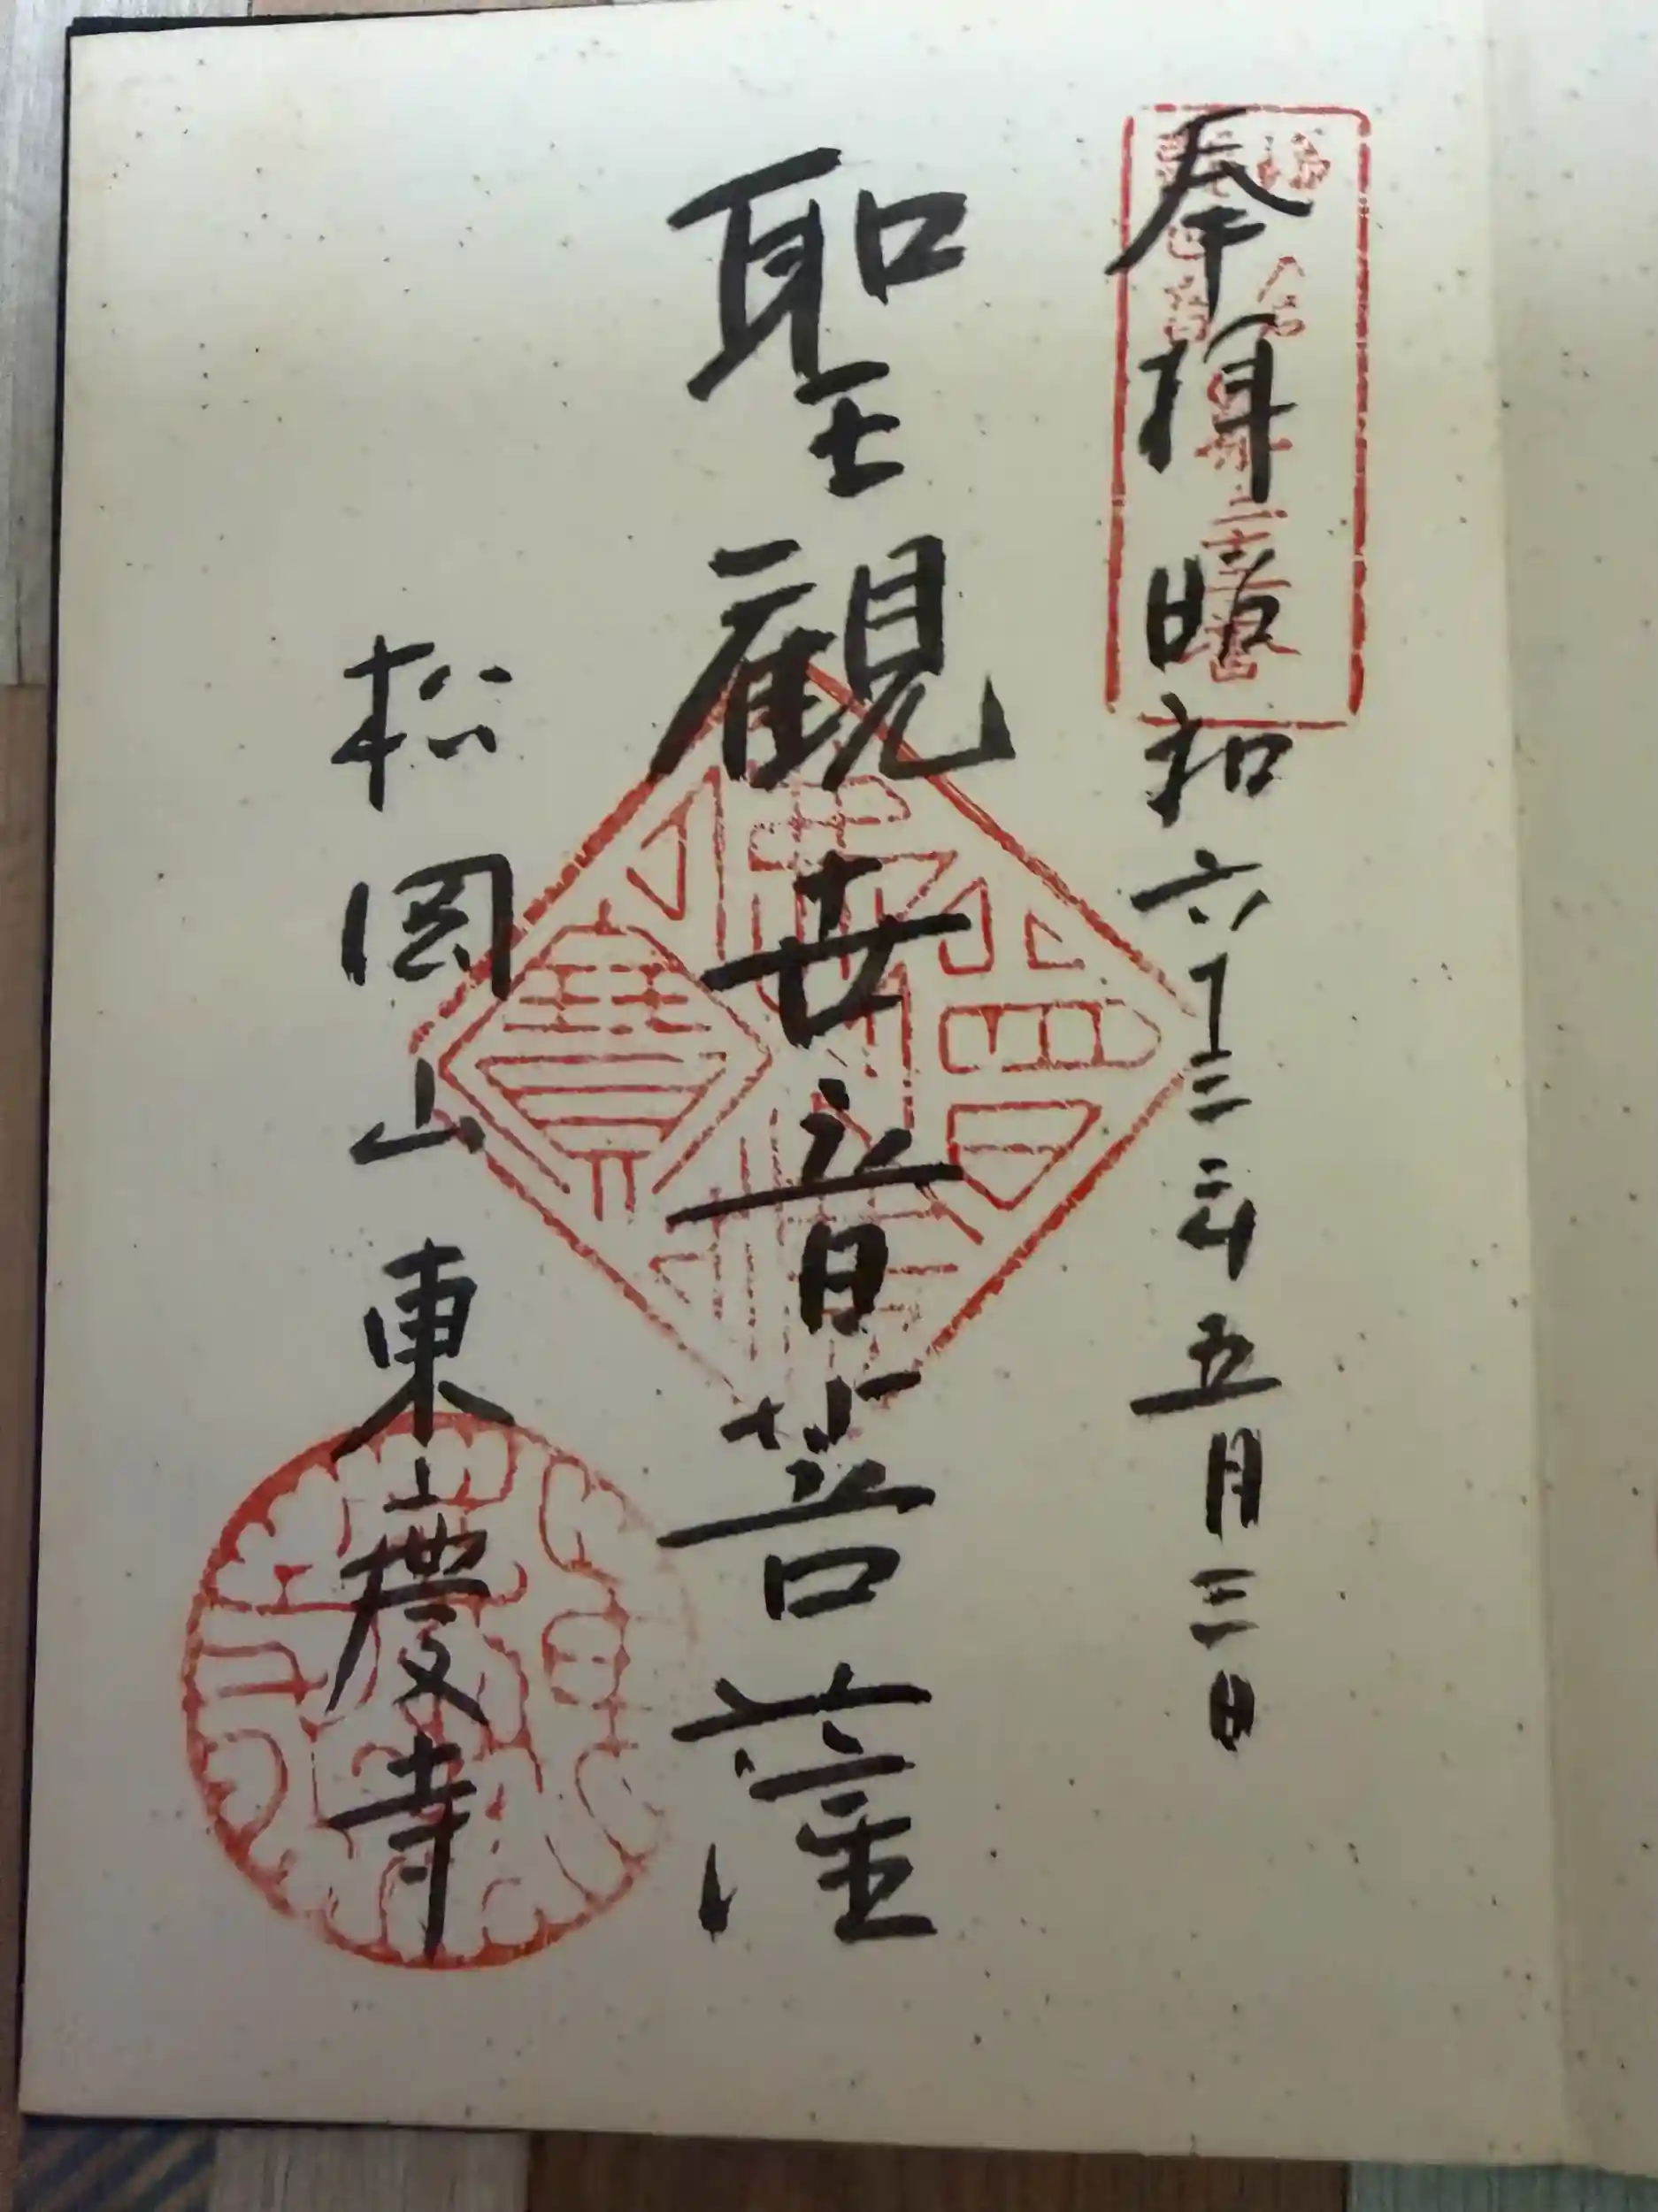 奉拝 昭和六十三年五月三日
聖観世音菩薩
松岡山東慶寺